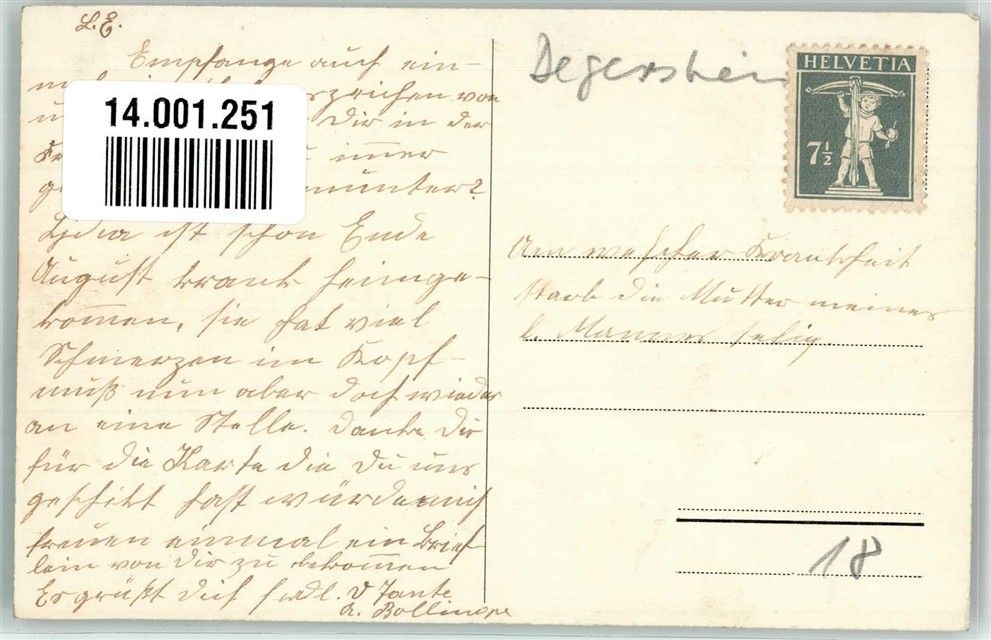 L. E.
Empfange auch ein-
zeichen von
Dir in der
immer
munter?
Lydia ist schon Ende
August krank heimge-
kommen, sie hat viel
Schmerzen im Kopf
muß nun aber doch wieder
an eine Stelle. Danke Dir
für die Karte die Du uns
geschikt hast würde mich
freuen einmal ein Brief-
lein von Dir zu bekommen
Es grüßt Dich frdl. v Tante
A. Bollinger
14.001.251
Degersheim
HELVETIA
7½
An welcher Krankheit
starb die Mutter meines
l. Mannes selig.
18